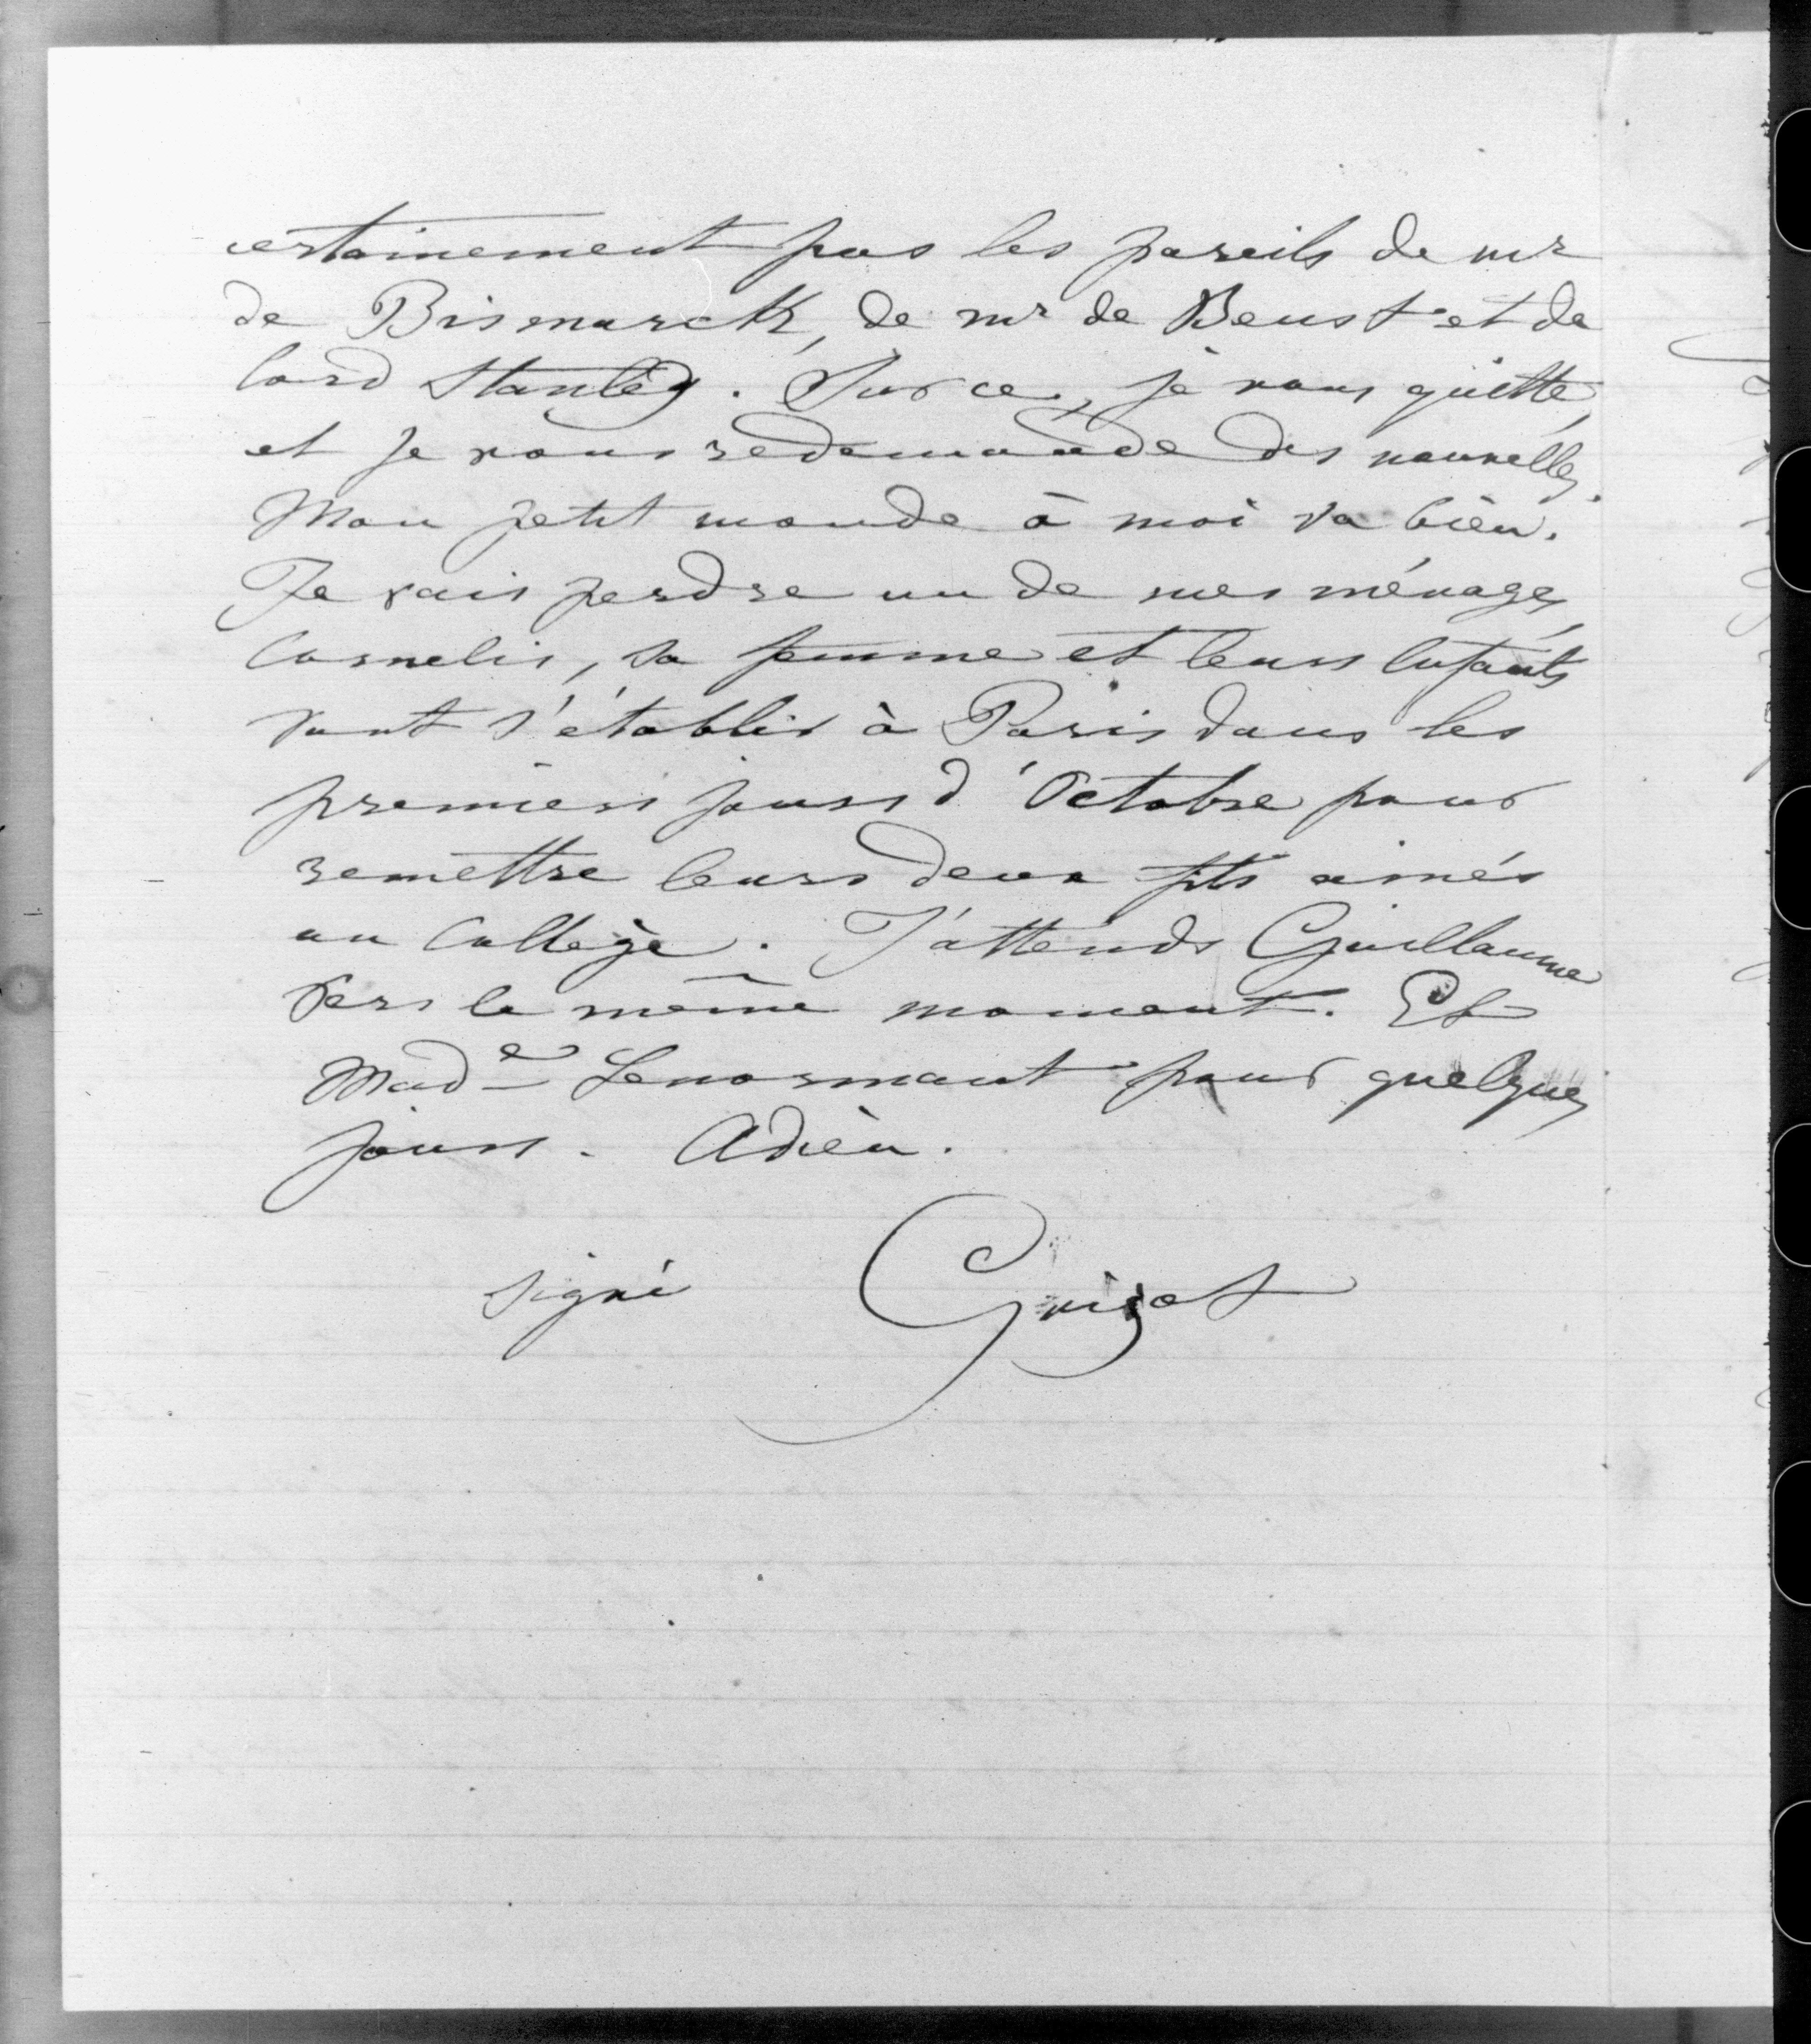 certainement pas les pareils de mr
de Bismarck, de mr de Beust et de
lord Stanley. Sur ce, je vous quitte,
et je vous redemande des nouvelles.
Mon petit monde à moi va bien.
Je vais perdre un de mes ménages,
Cornelis, sa femme et leurs enfants
vont s'établir à Paris dans les
premiers jours d'Octobre pour
remettre leurs deux fils aînés
au Collège. J'attends Guillaume
vers le même moment. Et
Made Lenormant pour quelques
jours. Adieu.
signé Guizot